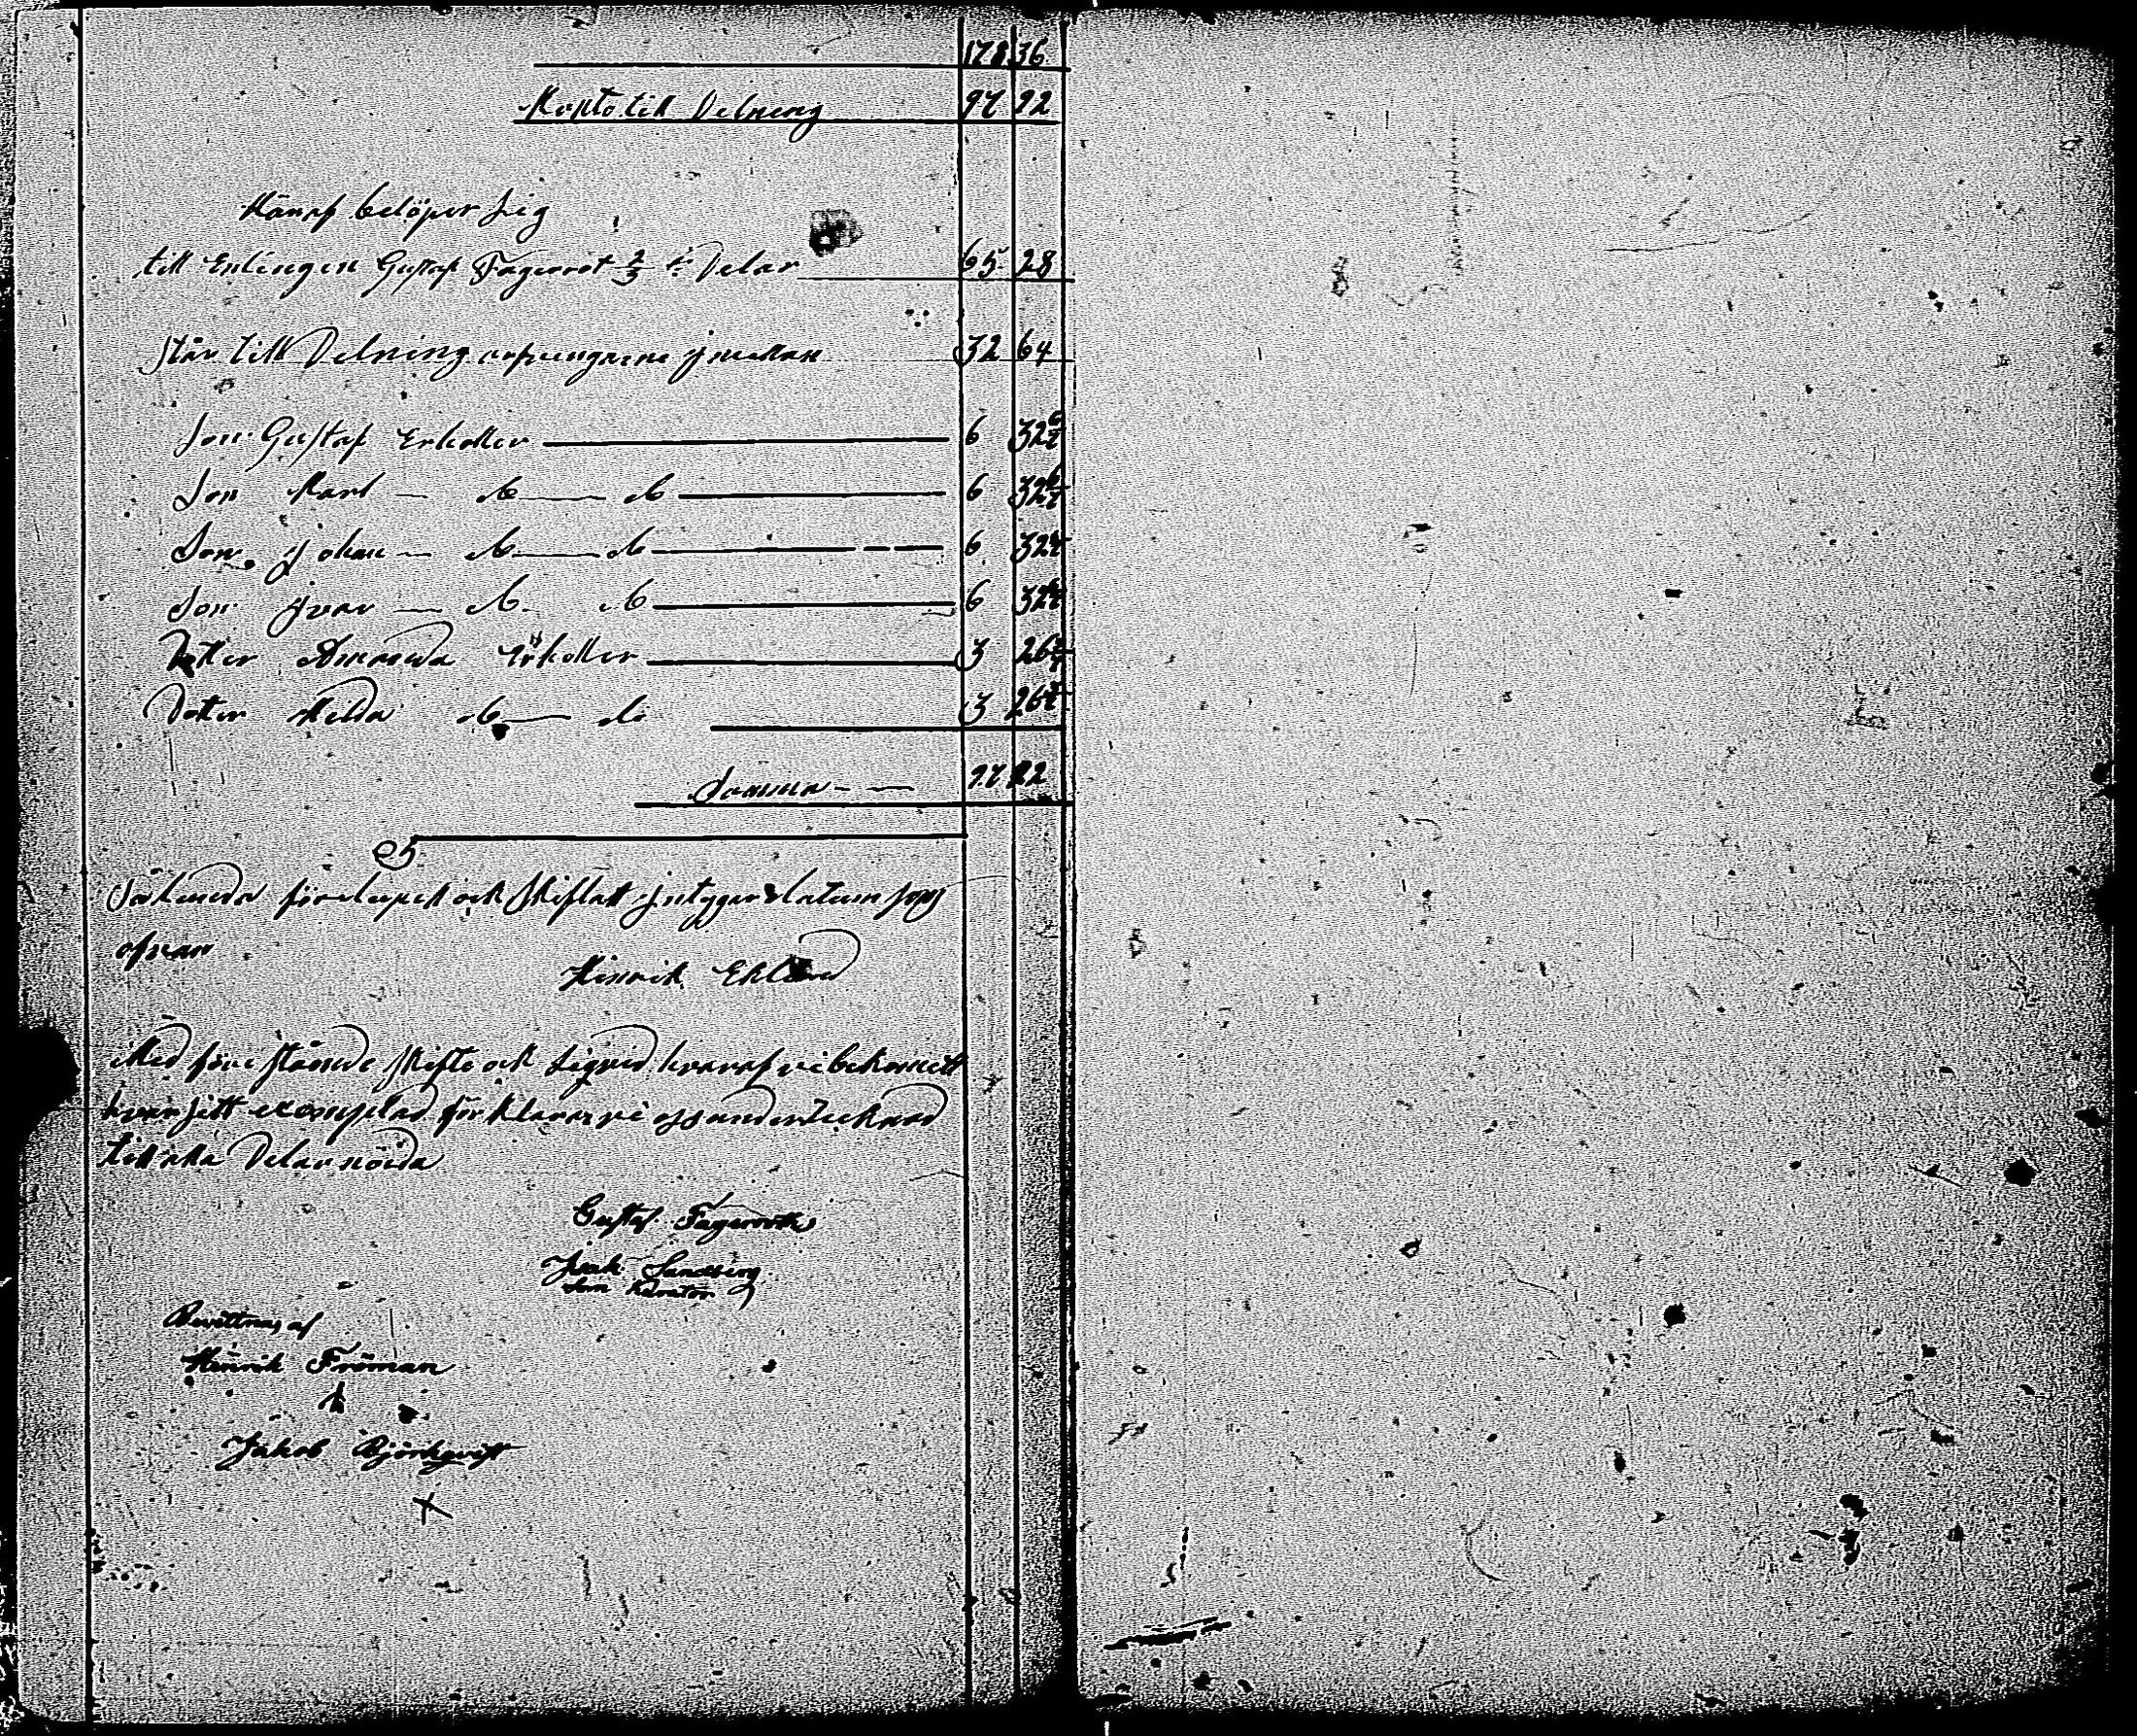 178 36
till Delning 97 92
Häraf belöper sig
till Enlingen Gustaf Fagerrot 2/3 Delar 65 28
står till Delning arfvingarne jmellan 32 64
Son Gustaf 6 32 6/7
Son Karl — do — do 6 32 6/7
Son Johan — do — do 6 32 6/7
Son Jvar — do do 6 32 6/7
Dotter Amanda 3 26 3/7
Dotter Hilda do — do 3 26 3/7
Summa — 97 92
Sålunda förelupet och skiftatt jntygar datum som
ofvan
Hinrik Eklund
Med före stående skifte och hvaraf vi bekommitt
hvar sitt exemplar för klarar vi oss undertecknad
till alla Delar nöida
Gustaf Fagerroth
Isak Sandberg
som kurator
Bevittnas af
Hinrik Fröman
Jakob Björkqvist